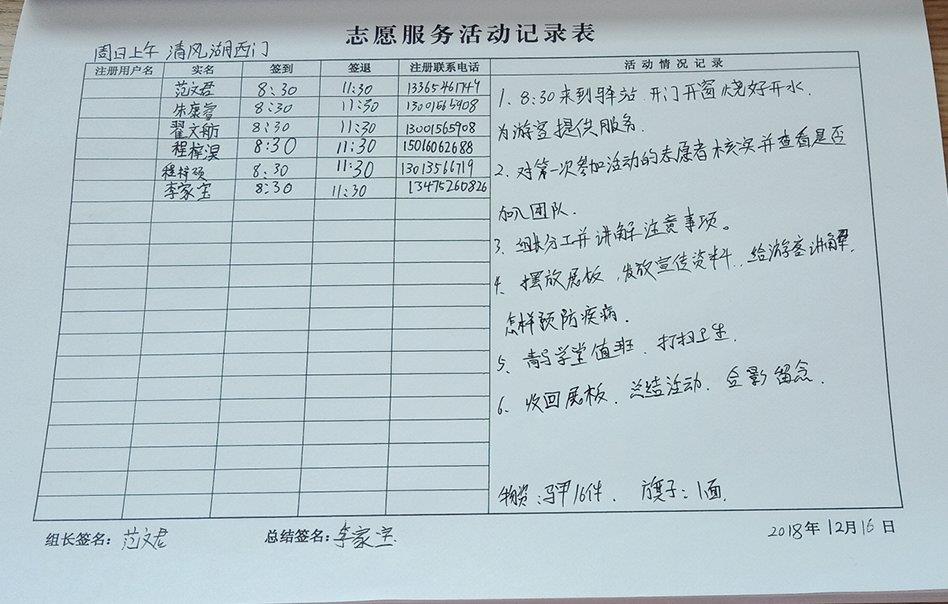 志愿服务活动记录表
周日上午 清风湖西门
注册用户名 实名 签到 签退 注册联系电话 活动情况记录
范文君 8:30 11:30 13365461749
朱康睿 8:30 11:30 13001565908
翟文舫 8:30 11:30 13001565908
程梓淏 8:30 11:30 15016062688
程梓硕 8:30 11:30 13013566719
李家宝 8:30 11:30 13475260826
1、8:30来到驿站.开门开窗烧好开水.
为游客提供服务.
2、对第一次参加活动的志愿者核实并查看是否
加入团队.
3、组长分工并讲解注意事项。
4、摆放展板,发放宣传资料.给游客讲解
怎样预防疾病.
5、青马学堂值班.打扫卫生.
6、收回展板.总结活动.合影留念.
物资:马甲16件. 旗子:1面.
组长签名:范文君 总结签名:李家宝.
2018年12月16日